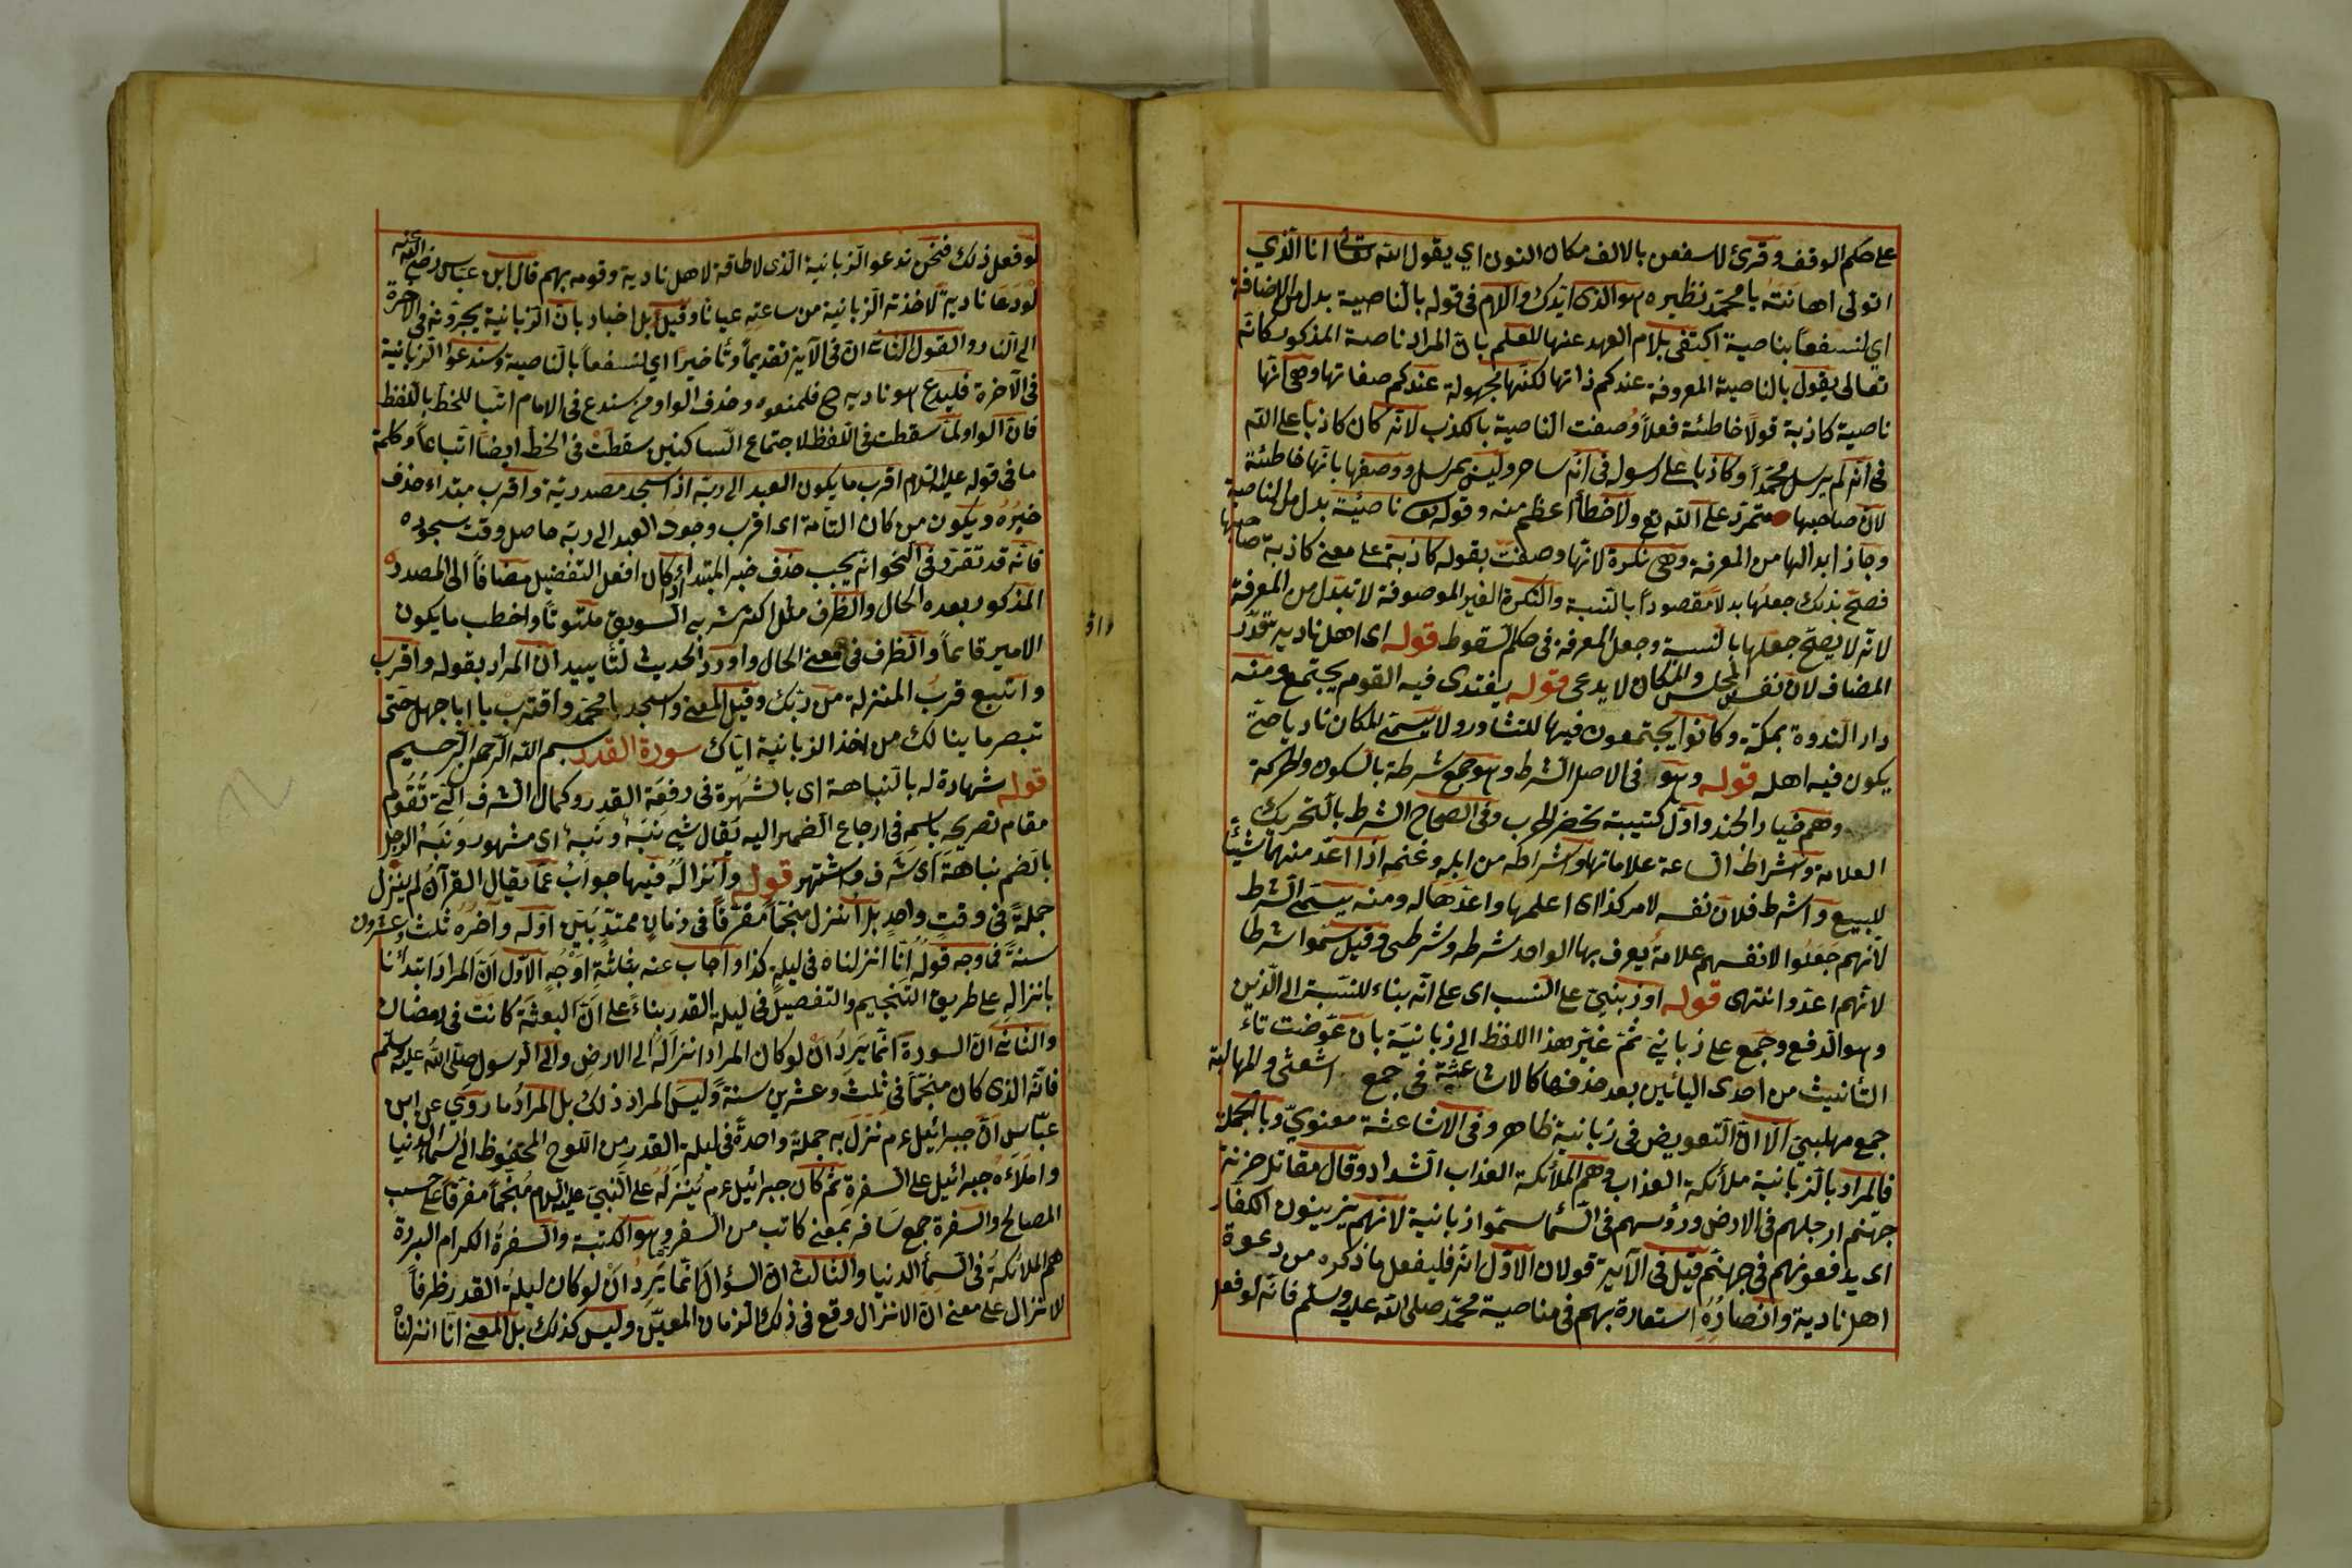 على حكم الوقف وقرئ لاسفعن بالالف مكان النون اي يقول الله تعالى انا الذي
اتولى اهانته يا محمد نظيره هو الذى ايدك واللام فى قوله بالناصية بدل من الاضافة
اي لنسفعا بناصيته اكتفى بلام العهد عنها للعلم بان المراد ناصية المذكور كانه
تعالى يقول بالناصية المعروفة عندكم ذاتها لكنها مجهولة عندكم صفاتها وهى انها
ناصية كاذبة قولا خاطئة فعلا وصفت الناصية بالكذب لانه كان كاذبا على الله
فى انه لم يرسل محمدا وكاذبا على رسوله فى انه ساحر وليس بمرسل ووصفها بانها خاطئة
لان صاحبها متمرد على الله تع ولا خطأ اعظم منه وقوله تع ناصية بدل من الناصية
وجاز ابدالها من المعرفة وهى نكرة لانها وصفت بقوله كاذبة على معنى كاذبة صاحبها
فصح بذلك جعلها بدلا مقصودا بالنسبة والنكرة الغير الموصوفة لا تبدل من المعرفة
لانه لا يصح جعلها بالنسبة وجعل المعرفة فى حكم السقوط قوله اى اهل ناديه بتقدير
المضاف لان نفس المجلس والمكان لا يدعى قوله ينتدى فيه القوم يجتمع ومنه
دار الندوة بمكة وكانوا يجتمعون فيها للتشاور ولا يسمى المكان ناديا حتى
يكون فيه اهله قوله وهو فى الاصل الشرط وهو جمع شرطة بالسكون والحركة
وهم خيار الجند واول كتيبة تحضر الحرب وفى الصحاح الشرط بالتحريك
العلامة واشراط الساعة علاماتها واشراط من ابله وغنمه اذا اعد منهما شيئا
للبيع واشرط فلان نفسه لامر كذا اى اعلمها واعدها له ومنه يسمى الشرط
لانهم جعلوا لانفسهم علامة يعرف بها الواحد شرطه وشرطى وقيل سموا شرطا
لانهم اعدوا انتهى قوله او زبنى على النسب اى على انه بناء للنسبة الى الزبن
وهو الدفع وجمع على زبانى ثم غير هذا اللفظ الى زبانية بان عوضت تاء
التأنيث من احدى اليائين بعد حذفها كالاشاعثة فى جمع اشعثى والمهالبة
جمع مهلبى الا ان التعويض فى زبانية ظاهر وفى الاشاعثة معنوى وبالجملة
فالمراد بالزبانية ملائكة العذاب وهم الملائكة العذاب الشداد وقال مقاتل خزنة
جهنم ارجلهم فى الارض ورؤسهم فى السماء سموا زبانية لانهم يزبنون الكفار
اى يدفعونهم فى جهنم قيل فى الآية قولان الاول انه فليفعل ما ذكره من دعوة
اهل نادية وانصاره استعارة بهم فى مناصبة محمد صلى الله عليه وسلم فانه لو فعل
لو فعل ذلك فنحن ندعو الزبانية الذى لا طاقة لاهل نادية وقومه بهم قال ابن عباس رضى الله عنه
لو دعا ناديه لاخذته الزبانية من ساعته عيانا وقيل بل اخبار بان الزبانية يجرونه فى الاخرة
الى النار والقول الثانى ان فى الآية تقديما وتأخيرا اي لنسفعا بالناصية وسندعوا الزبانية
فى الآخرة فليدع هو ناديه ح فليمنعوه وحذف الواو من سندع فى الامام اتباعا للخط باللفظ
فان الواو لما سقطت فى اللفظ لاجتماع الساكنين سقطت فى الخط ايضا اتباعا وكلمة
ما فى قوله عليه السلام اقرب ما يكون العبد الى ربه اذا سجد مصدرية واقرب مبتداء حذف
خبره ويكون من كان التامة اى اقرب وجود العبد الى ربه حاصل وقت سجوده
فانه قد تقرر فى النحو انه يجب حذف خبر المبتداء اذا كان افعل التفضيل مضافا الى المصدر
المذكور بعده الحال والظرف مثل اكثر شربى السويق ملتوتا واخطب ما يكون
الامير قائما والظرف فى معنى الحال واورد الحديث لتأييد ان المراد بقوله واقرب
واتبع قرب المنزلة من ربك وقيل المعنى واسجد يا محمد واقترب يا ابا جهل حتى
تبصر ما ينالك من اخذ الزبانية اياك سورة القدر بسم الله الرحمن الرحيم
قوله شهادة له بالنباهة اى بالشهرة فى رفعة القدر وكمال الشرف التى تقوم
مقام تصريحه باسمه فى ارجاع الضمير اليه يقال شئ نبه ونبه اى مشهور ونبه الرجل
بالضم نباهة اى شرف واشتهر قوله وانزاله فيها جواب عما يقال القرآن لم ينزل
جملة فى وقت واحد بل انزل منجما مفرقا فى زمان ممتد بين اوله وآخره ثلث وعشرون
سنة فما وجه قوله انا انزلناه فى ليلة كذا واجاب عنه بثلثة اوجه الاول ان المراد ابتدأنا
بانزاله على طريق التنجيم والتفصيل فى ليلة القدر بناء على ان البعثة كانت فى رمضان
والثانى ان السورة انما يرد ان لو كان المراد انزاله الى الارض والى الرسول صلى الله عليه وسلم
فانه الذى كان منجما فى ثلث وعشرين سنة وليس المراد ذلك بل المراد ما روي عن ابن
عباس ان جبرائيل عم نزل به جملة واحدة فى ليلة القدر من اللوح المحفوظ الى السماء الدنيا
واملاءه جبرائيل على السفرة ثم كان جبرائيل عم ينزله على النبى عليه السلام منجما مفرقا على حسب
المصالح والسفرة جمع سافر بمعنى كاتب من السفر وهو الكتبة والسفرة الكرام البررة
هم الملائكة فى السماء الدنيا والثالث ان السؤال انما يرد ان لو كان ليلة القدر ظرفا
لانزال على معنى ان الانزال وقع فى ذلك الزمان المعين وليس كذلك بل المعنى انا انزلناه